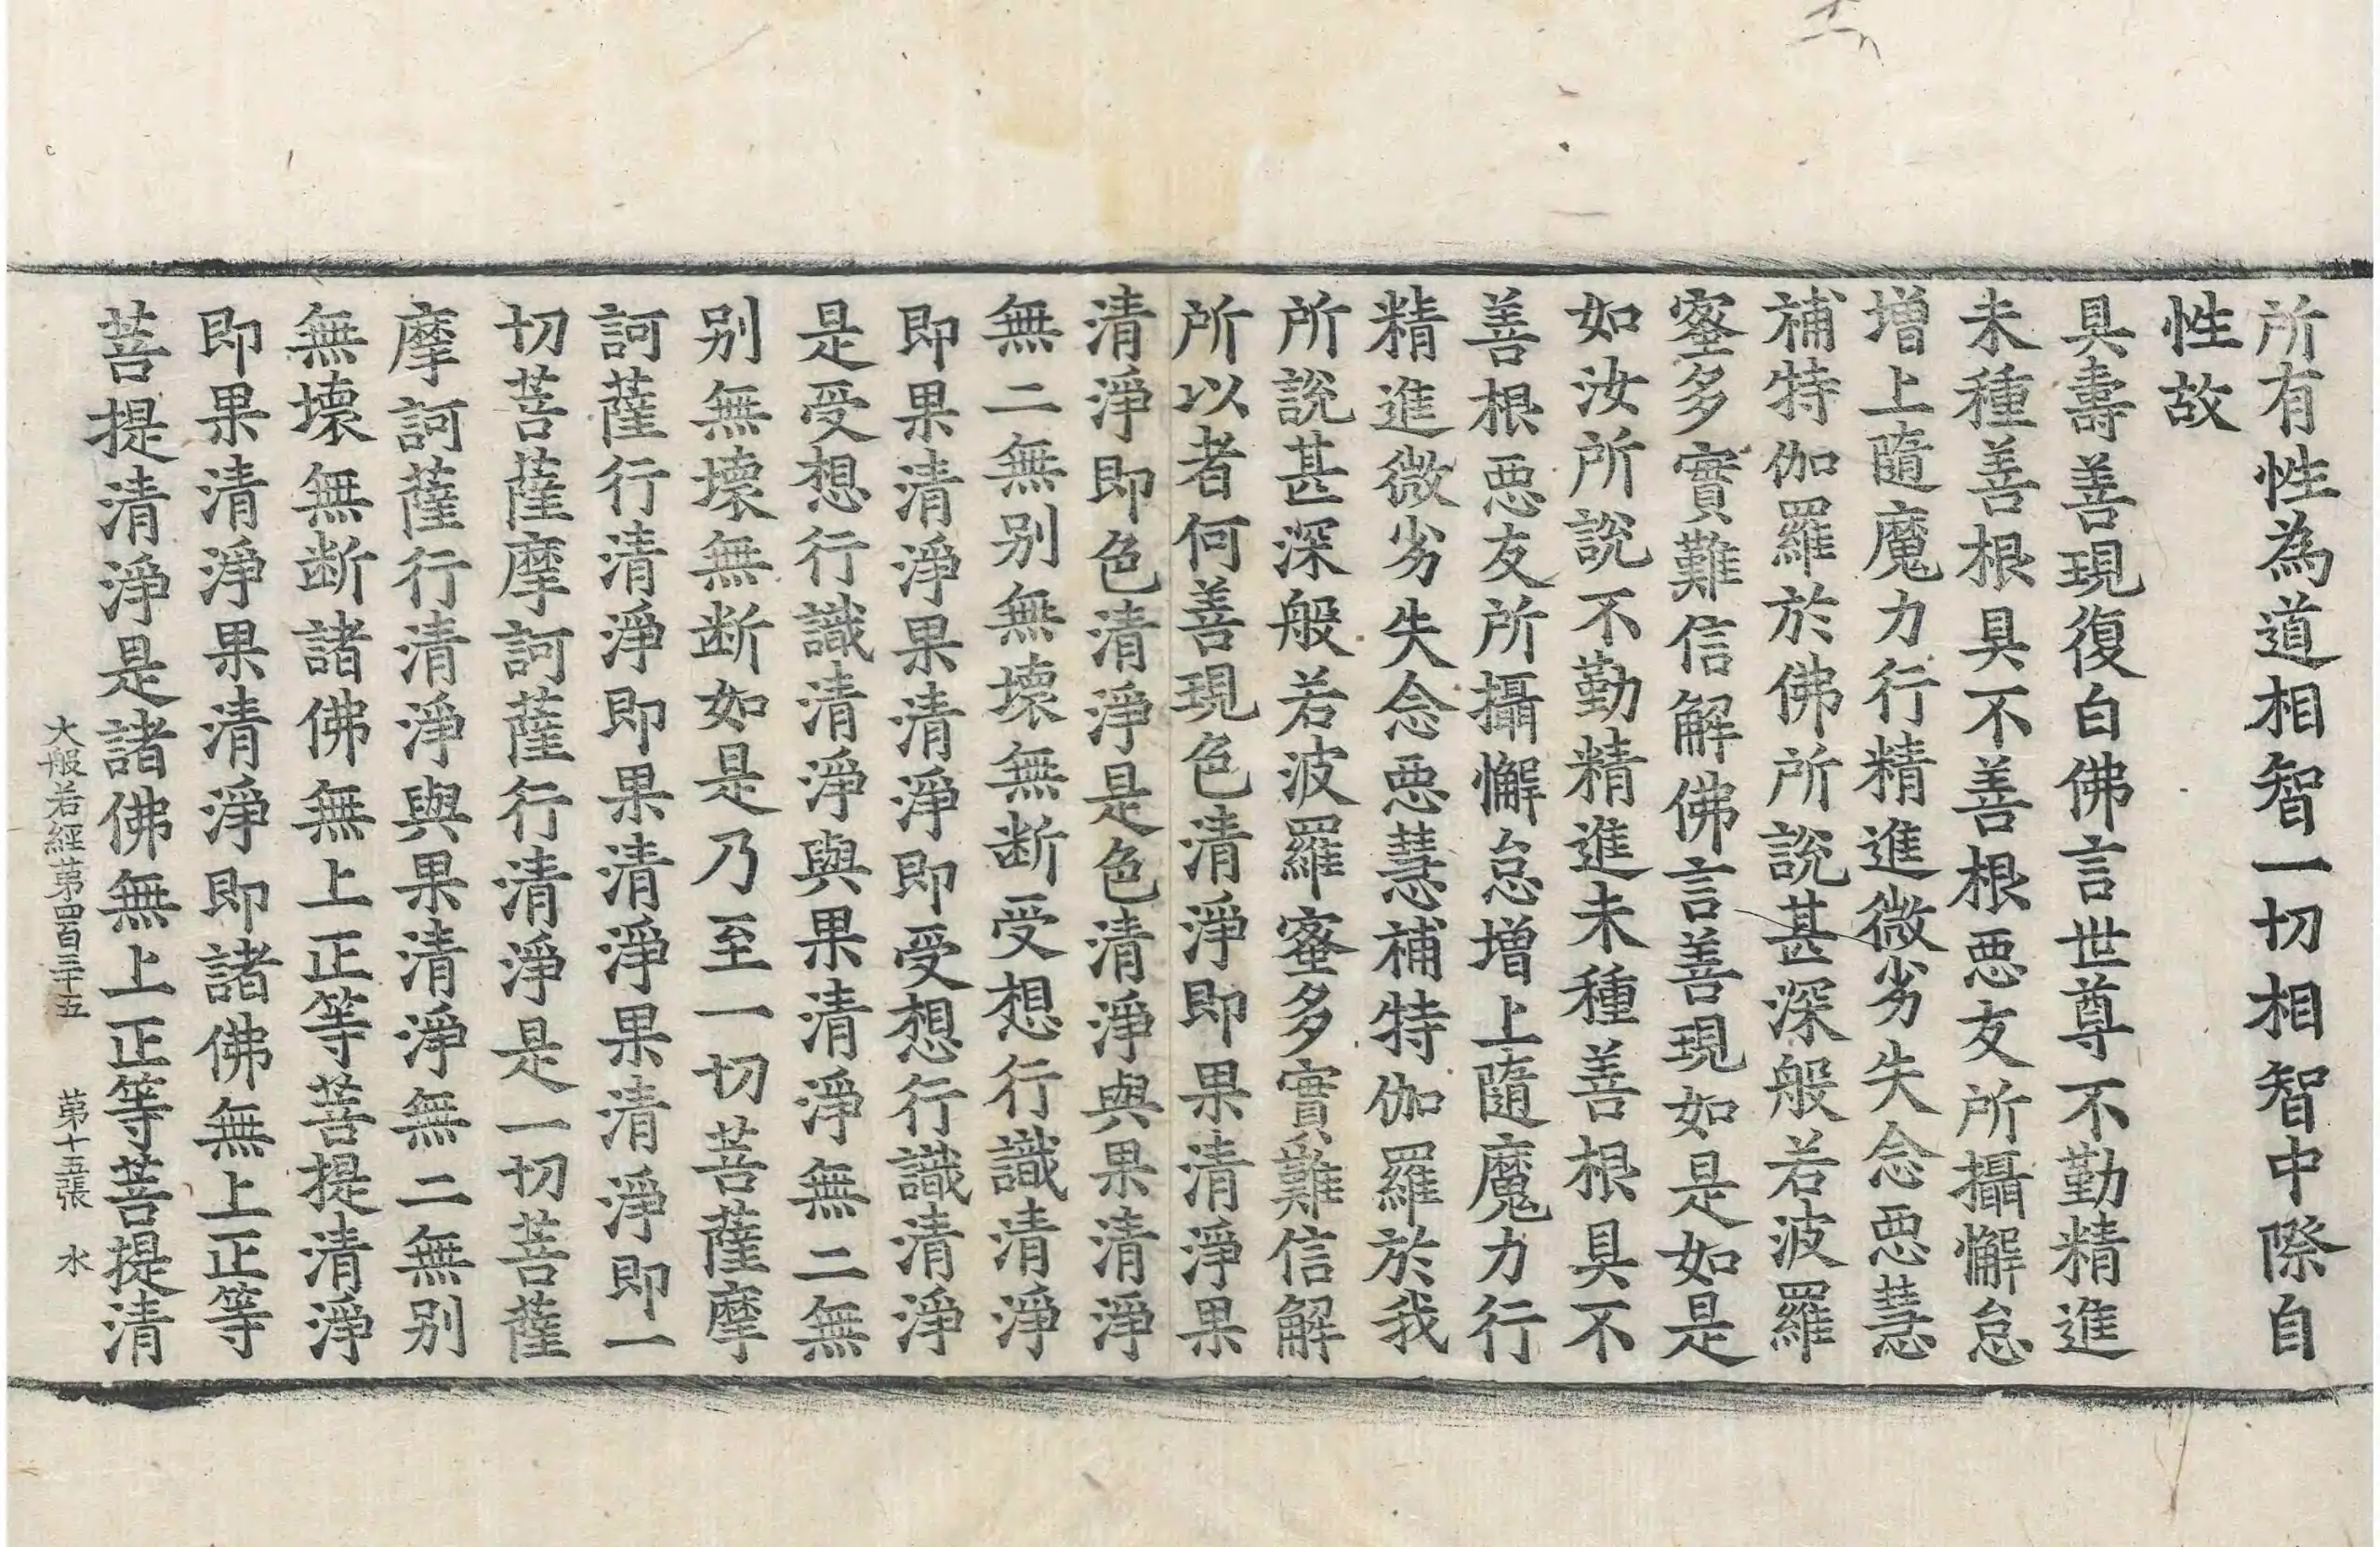 所有性為道相智一切相智中際自
性故
具壽善現復白佛言世尊不勤精進
未種善根具不善根惡友所攝懈怠
增上隨魔力行精進微劣失念惡慧
補特伽羅於佛所說甚深般若波羅
蜜多實難信解佛言善現如是如是
如汝所說不勤精進未種善根具不
善根惡友所攝懈怠增上隨魔力行
精進微劣失念惡慧補特伽羅於我
所說甚深般若波羅蜜多實難信解
所以者何善現色清淨即果清淨果
清淨即色清淨是色清淨與果清淨
無二無别無壞無断受想行識清淨
即果清淨果清淨即受想行識清淨
是受想行識清淨與果清淨無二無
别無壞無断如是乃至一切菩薩摩
訶薩行清淨即果清淨果清淨即一
切菩薩摩訶薩行清淨是一切菩薩
摩訶薩行清淨與果清淨無二無别
無壞無断諸佛無上正等菩提清淨
即果清淨果清淨即諸佛無上正等
菩提清淨是諸佛無上正等菩提清
大般若經第四百三十五 第十五張 水